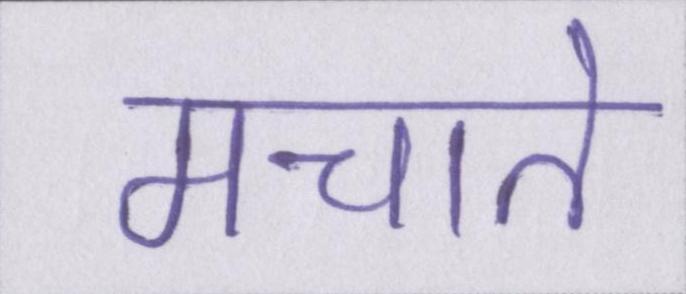 मचाते